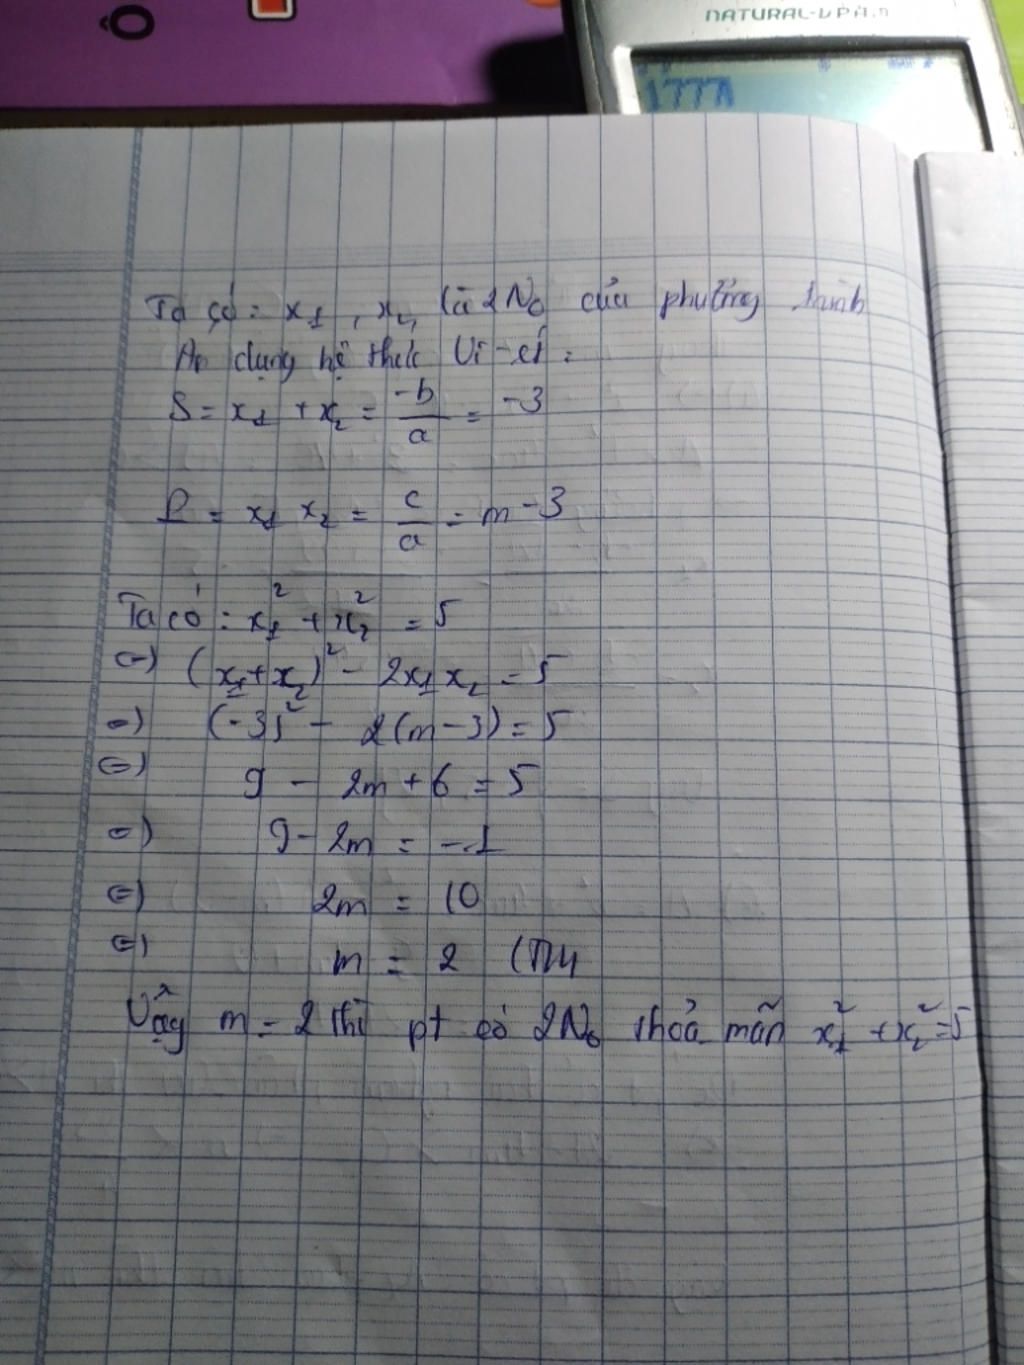 Ô
NATURAL-V.P.A.M
Ta có: x₁, x₂ là 2 No của phương trình
Áp dụng hệ thức Vi-ét:
S = x₁ + x₂ = -b/a = -3
P = x₁ x₂ = c/a = m-3
Ta có: x₁² + x₂² = 5
(=) (x₁+x₂)² - 2x₁x₂ = 5
(=) (-3)² - 2(m-3) = 5
(=) 9 - 2m + 6 = 5
(=) 9 - 2m = -1
(=) 2m = 10
(=) m = 2 (TM
Vậy m = 2 thì pt có 2No thỏa mãn x₁² + x₂² = 5